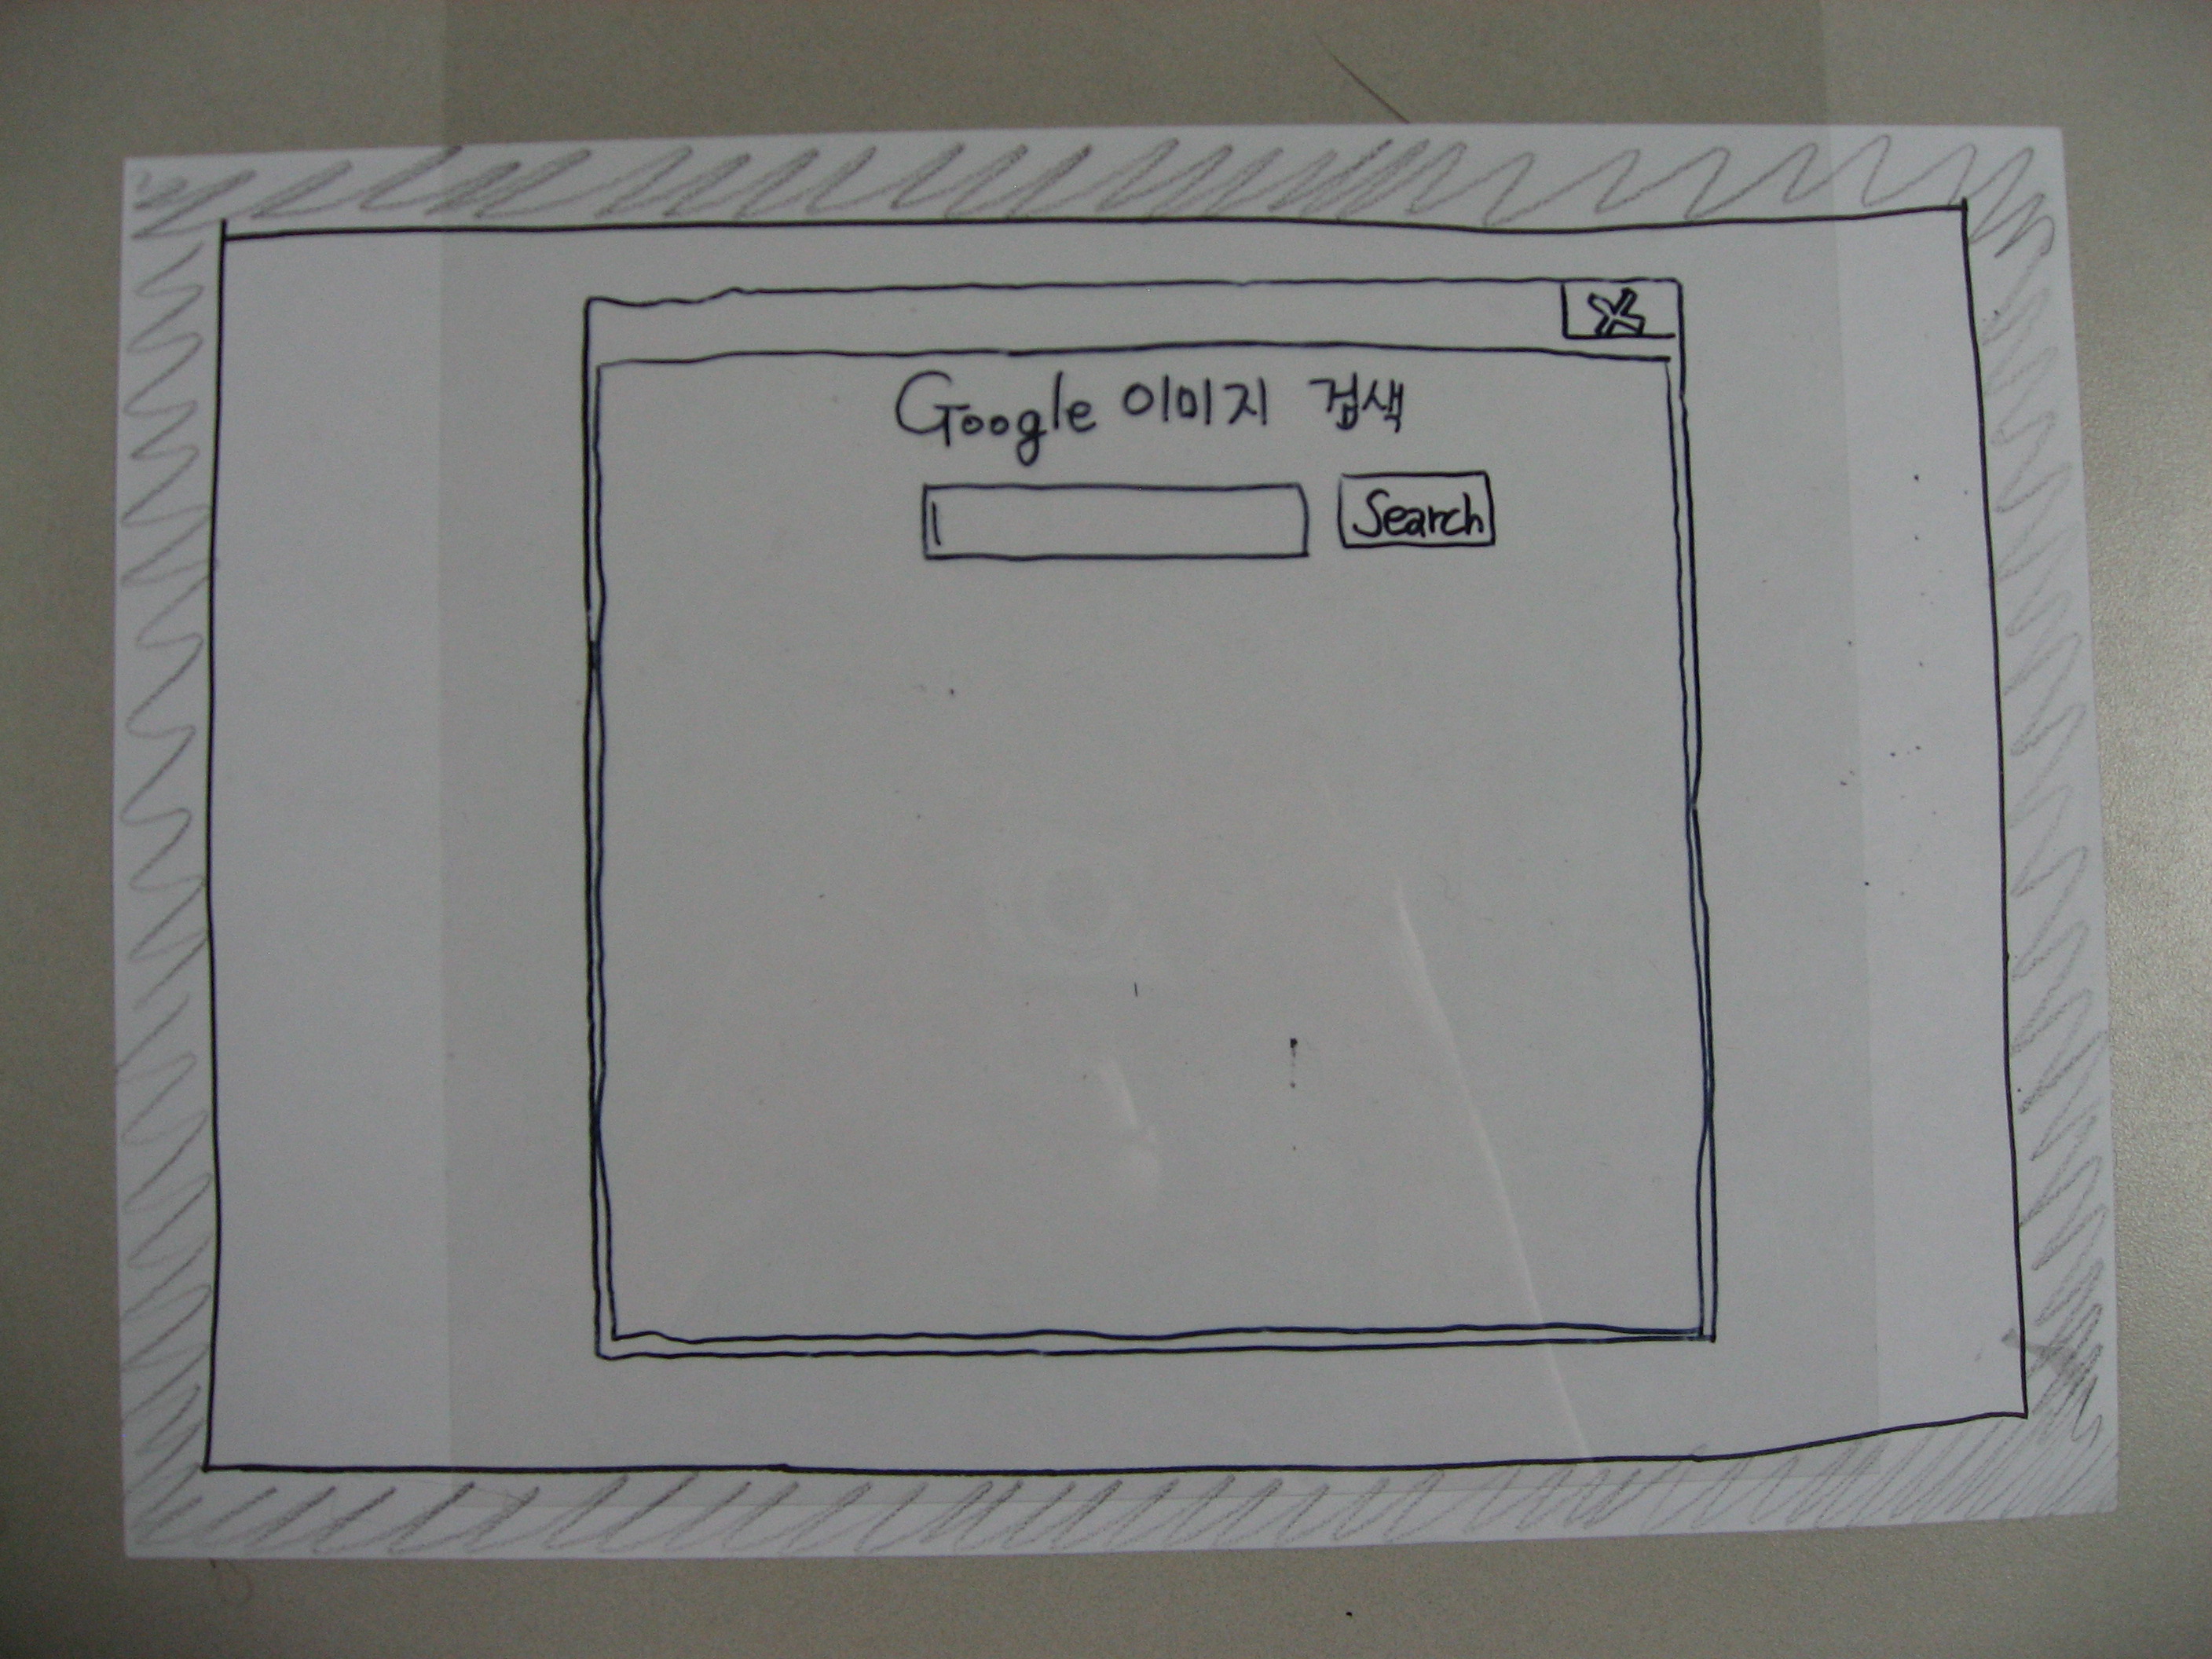 Google 이미지 검색
Search